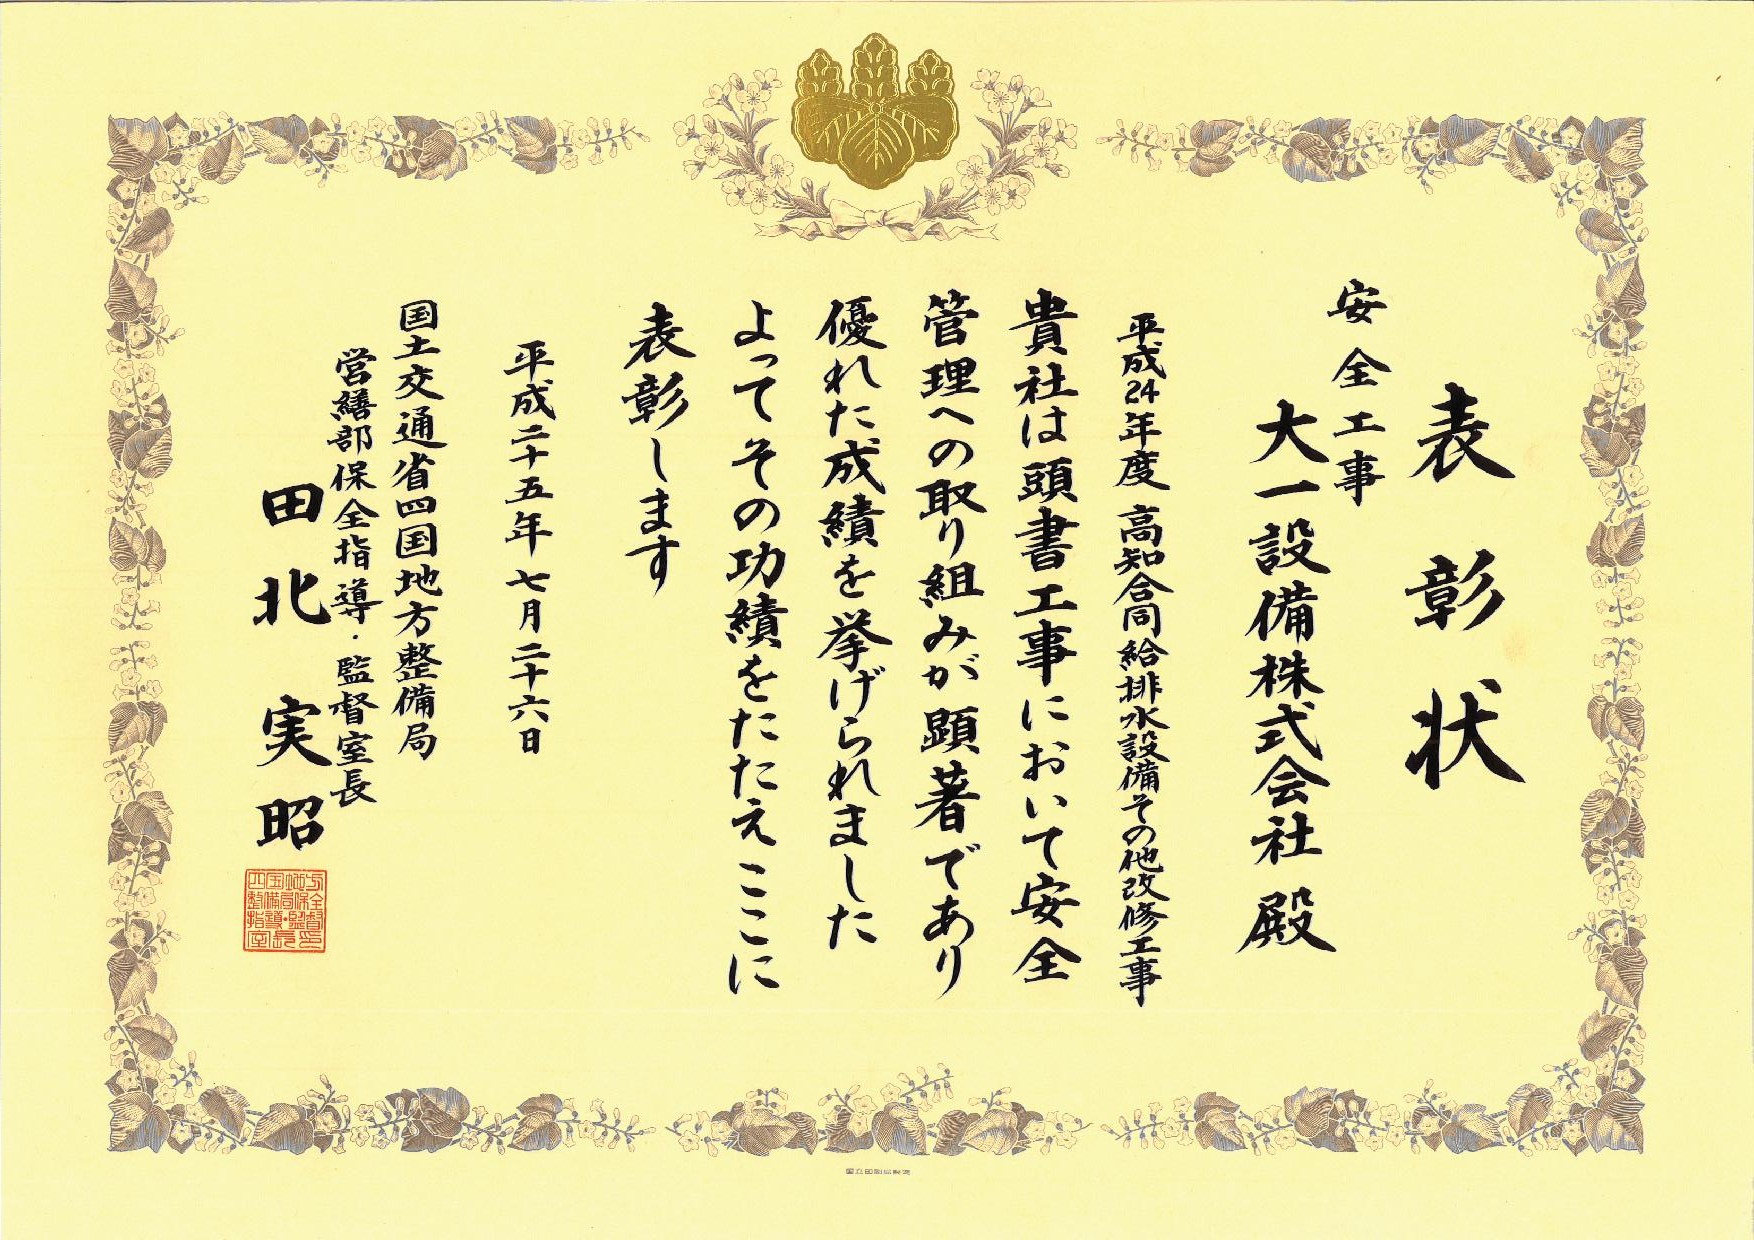 表彰状
安全工事
大一設備株式会社殿
平成24年度 高知合同給排水設備その他改修工事
貴社は頭書工事において安全
管理への取り組みが顕著であり
優れた成績を挙げられました
よってその功績をたたえここに
表彰します
平成二十五年七月二十六日
国土交通省四国地方整備局
営繕部保全指導・監督室長
田北実昭
国立印刷局製造